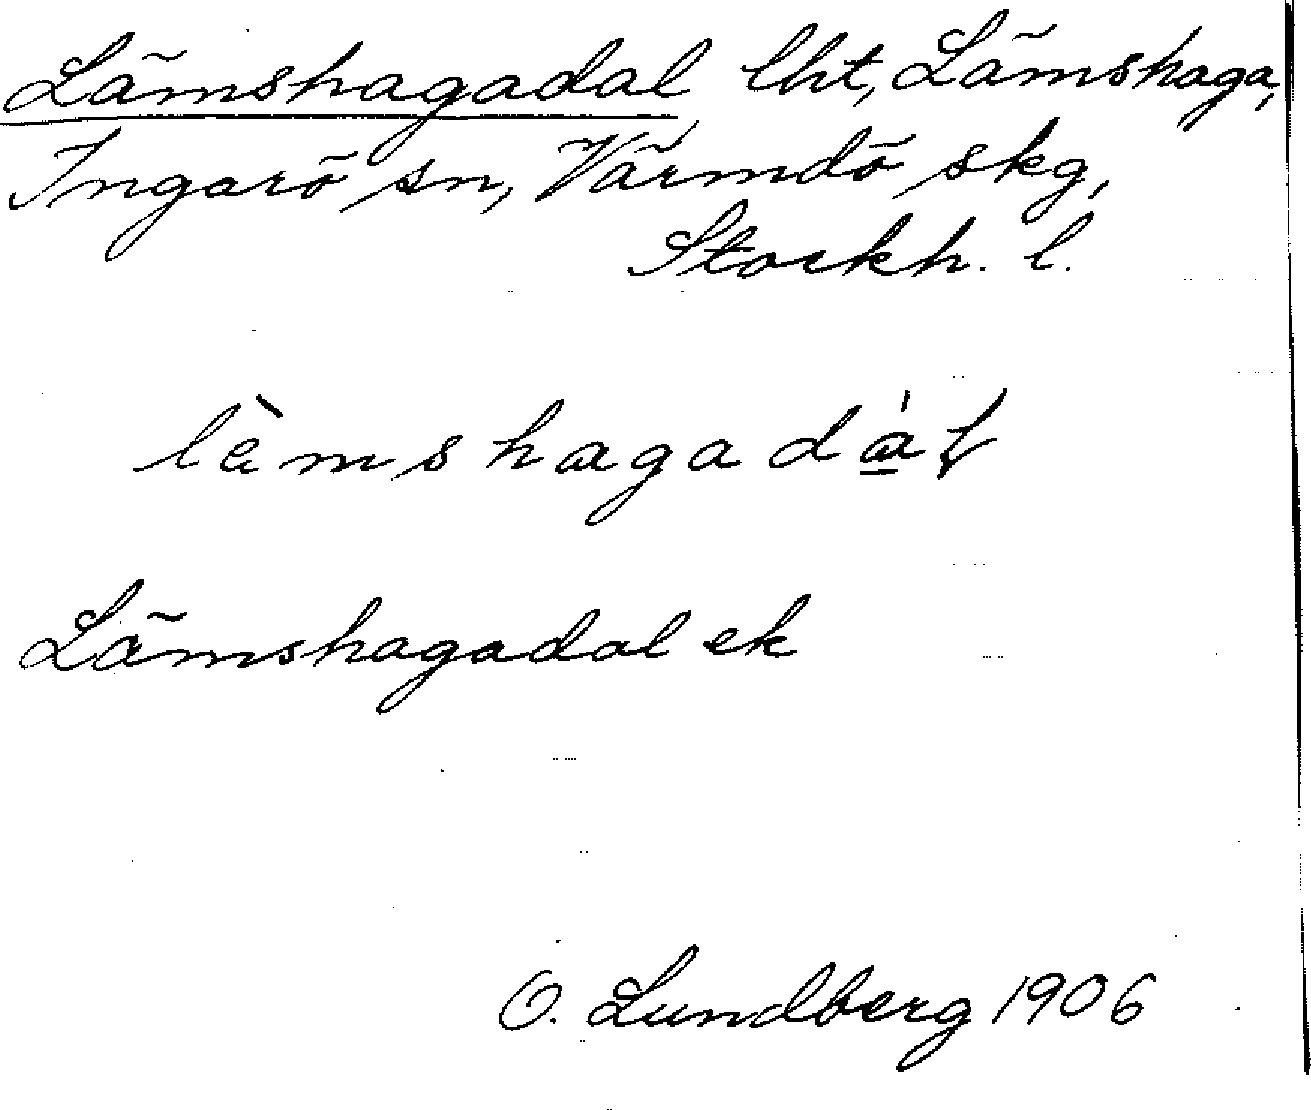 Lämshagadal lht, Lämshaga,
Ingarö sn, Värmdö skg,
Stockh. l.
lèmshagadál
Lämshagadal ek
O. Lundberg 1906